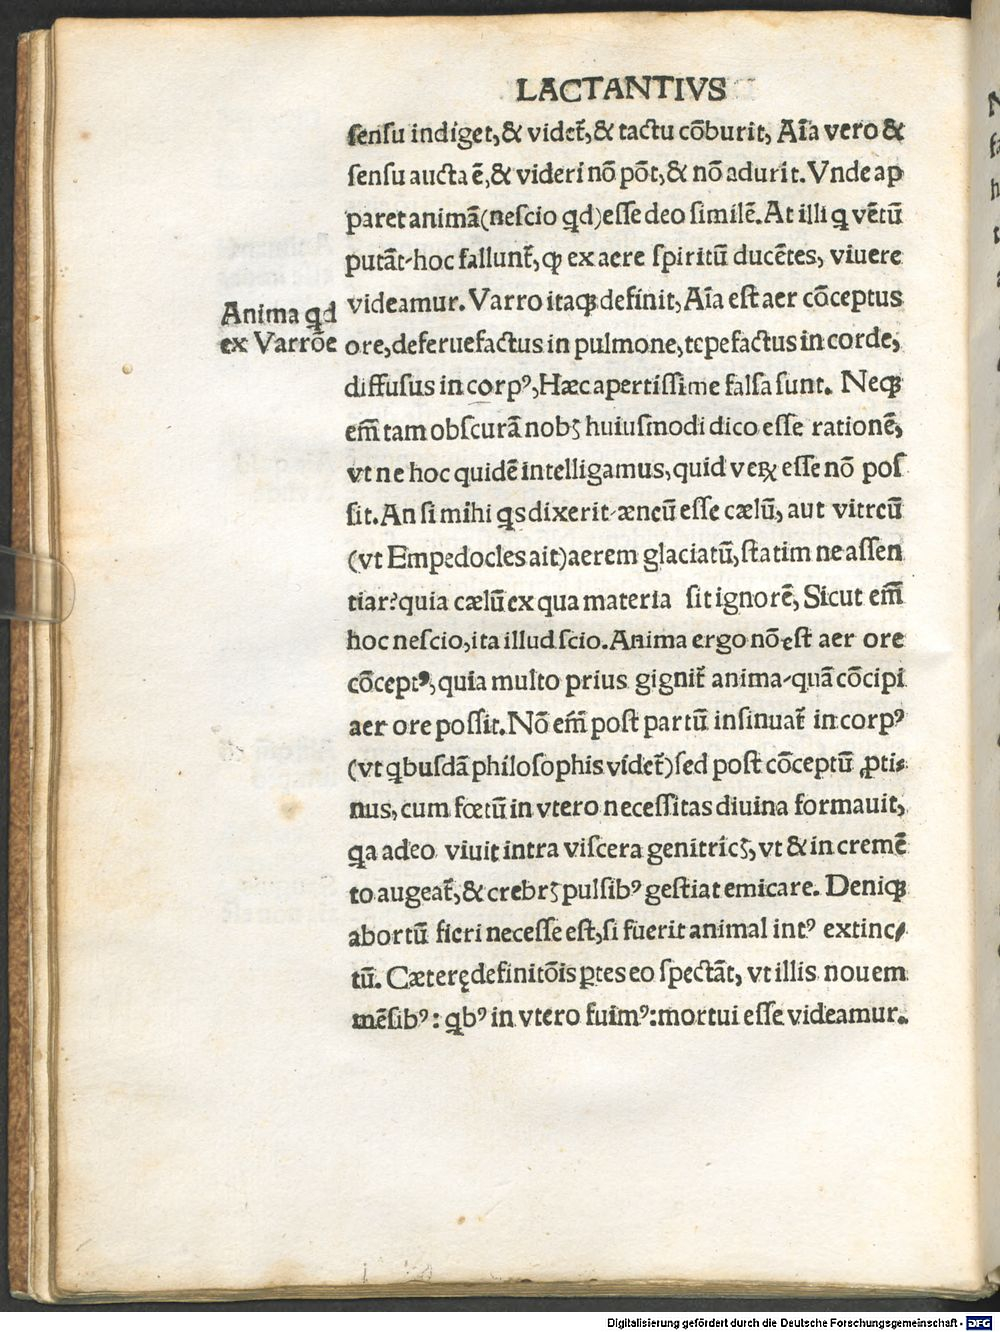 LACTANTIVS
ſenſu indiget,& videt᷑,& tactu cōburit, Aīa vero &
ſenſu aucta ē,& videri nō pōt,& nō adurit. Vnde ap
paret animā(neſcio qd)eſſe deo ſimilē. At illi q vētū
putāt hoc fallunt᷑, ꝙ ex aere ſpiritū ducētes, viuere
videamur. Varro itaqꝫ definit, Aīa eſt aer cōceptus
Anima qd
ex Varrōe
ore,deferuefactus in pulmone,tepefactus in corde,
diffuſus in corpꝰ,Hæc apertiſſime falſa ſunt. Neqꝫ
em̄ tam obſcurā nobꝫ huiuſmodi dico eſſe rationē,
vt ne hoc quidē intelligamus,quid veꝝ eſſe nō poſ
ſit. An ſi mihi qs dixerit æneū eſſe cælū, aut vitreū
(vt Empedocles ait)aerem glaciatū,ſtatim ne aſſen
tiar?quia cælū ex qua materia ſit ignorē, Sicut em̄
hoc neſcio,ita illud ſcio. Anima ergo nō eſt aer ore
cōceptꝰ,quia multo prius gignit᷑ anima quā cōcipi
aer ore poſſit. Nō em̄ poſt partū inſinuat᷑ in corpꝰ
(vt qbuſdā philoſophis videt᷑)ſed poſt cōceptū ꝓti⸗
nus,cum fœtū in vtero neceſſitas diuina formauit,
qa adeo viuit intra viſcera genitricꝫ,vt & in cremē
to augeat᷑,& crebrꝫ pulſibꝰ geſtiat emicare. Deniqꝫ
abortū fieri neceſſe eſt,ſi fuerit animal intꝰ extinc⸗
tū. Cæterę definitōis ꝑtes eo ſpectāt, vt illis nouem
mēſibꝰ: qbꝰ in vtero fuimꝰ:mortui eſſe videamur.
Digitalisierung gefördert durch die Deutsche Forschungsgemeinschaft - DFG